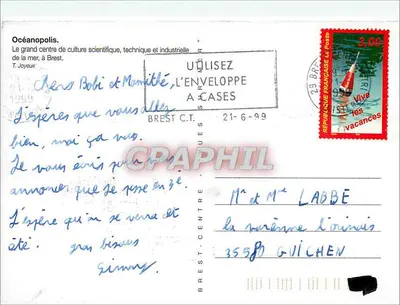 Océanopolis.
Le grand centre de culture scientifique, technique et industrielle
de la mer, à Brest.
T. Joyeux
UTILISEZ
L'ENVELOPPE
A CASES
BREST C.T. 21-6-99
29 BREST
3,00
La Poste
RÉPUBLIQUE FRANÇAISE
Vive
les
vacances
Chers Bobi et Mamithé
J'espère que vous allez
bien, moi ça va.
Je vous écris pour vous
annoncer que je passe en
J'espère qu'on se verra cet
été.
gros bisous
CRAPHIL
BREST - CENTRE
Mr et Mme LABBÉ
la varenne
35580 GUICHEN